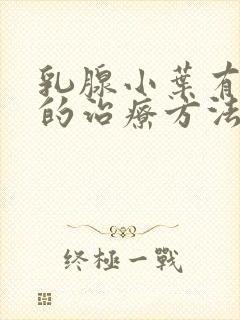 乳腺小葉有
的治療方法
终極一戰